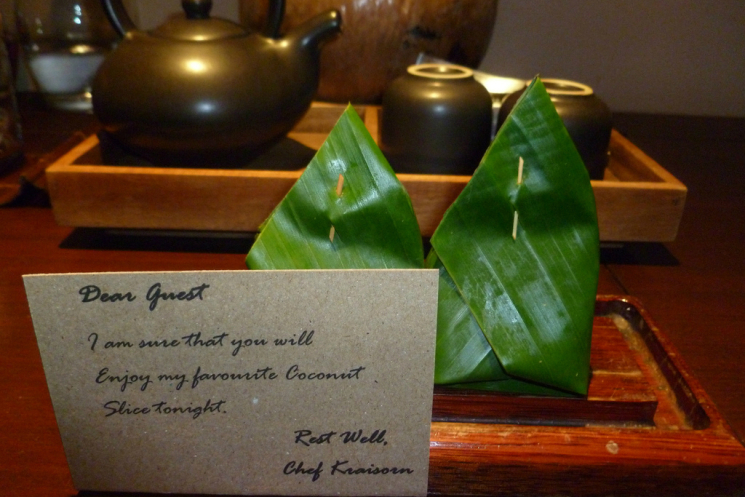 Dear Guest
I am sure that you will
Enjoy my favourite Coconut
Slice tonight.
Rest Well,
Chef Kraisorn